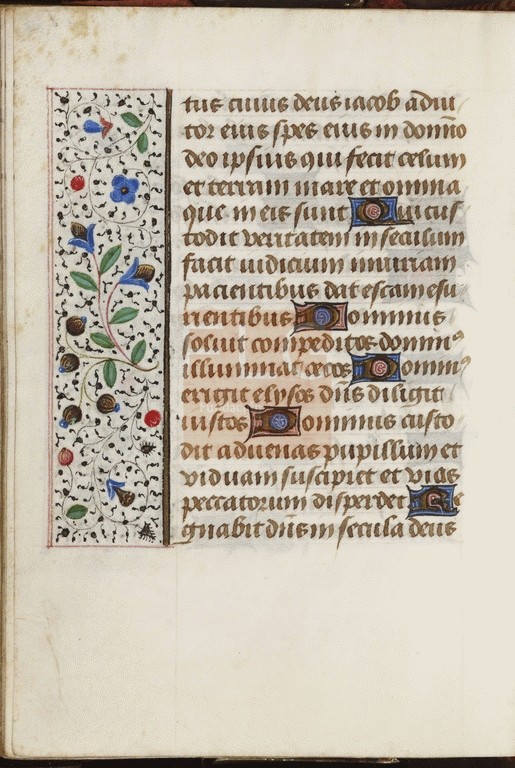 tus cuius deus iacob adiu
tor eius spes eius in domino
deo ipsius qui fecit celum
et terram mare et omnia
que in eis sunt Qui cus
todit veritatem in seculum
facit iudicium iniuriam
pacientibus dat escam esu
rientibus Dominus
soluit compeditos domin⁹
illuminat cecos Domin⁹
erigit elysos dñs diligit
iustos Dominus custo
dit aduenas pupillum et
viduam suscipiet et vias
peccatorum disperdet Re
gnabit dñs in secula deus